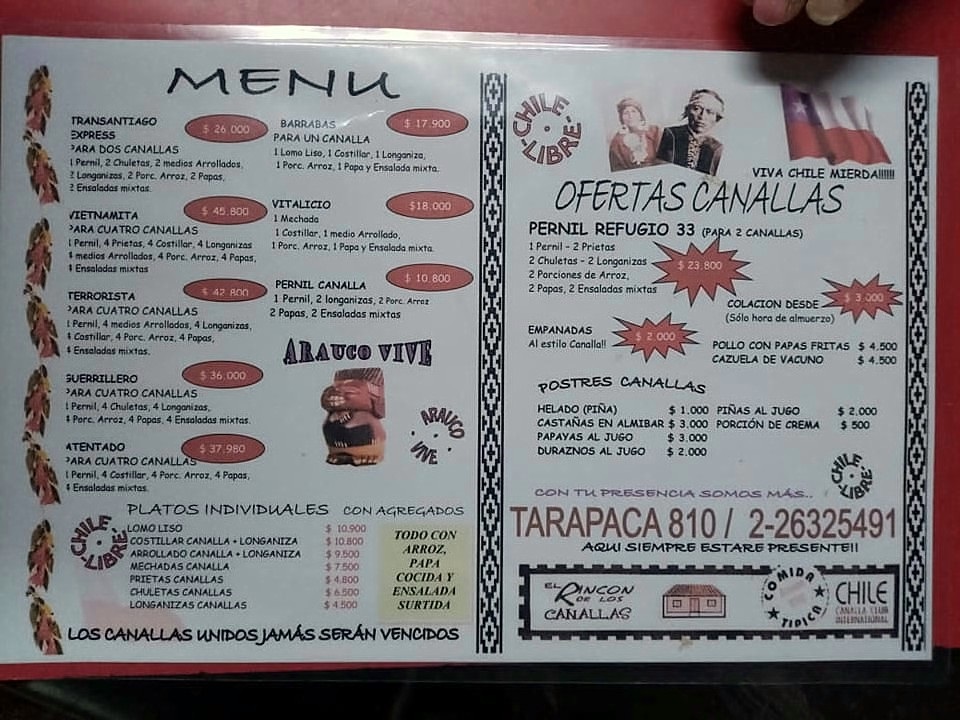 MENU
TRANSANTIAGO $ 26.000
EXPRESS
PARA DOS CANALLAS
1 Pernil, 2 Chuletas, 2 medios Arrollados,
2 Longanizas, 2 Porc. Arroz, 2 Papas,
2 Ensaladas mixtas.
VIETNAMITA $ 45.800
PARA CUATRO CANALLAS
1 Pernil, 4 Prietas, 4 Costillar, 4 Longanizas
4 medios Arrollados, 4 Porc. Arroz, 4 Papas,
4 Ensaladas mixtas
TERRORISTA $ 42.800
PARA CUATRO CANALLAS
1 Pernil, 4 medios Arrollados, 4 Longanizas,
4 Costillar, 4 Porc. Arroz, 4 Papas,
4 Ensaladas mixtas.
GUERRILLERO $ 36.000
PARA CUATRO CANALLAS
1 Pernil, 4 Chuletas, 4 Longanizas,
4 Porc. Arroz, 4 Papas, 4 Ensaladas mixtas.
ATENTADO $ 37.980
PARA CUATRO CANALLAS
1 Pernil, 4 Costillar, 4 Porc. Arroz, 4 Papas,
4 Ensaladas mixtas.
BARRABAS $ 17.900
PARA UN CANALLA
1 Lomo Liso, 1 Costillar, 1 Longaniza,
1 Porc. Arroz, 1 Papa y Ensalada mixta.
VITALICIO $18.000
1 Mechada
1 Costillar, 1 medio Arrollado,
1 Porc. Arroz, 1 Papa y Ensalada mixta.
PERNIL CANALLA $ 10.800
1 Pernil, 2 longanizas, 2 Porc. Arroz
2 Papas, 2 Ensaladas mixtas
ARAUCO VIVE
ARAUCO VIVE
PLATOS INDIVIDUALES CON AGREGADOS
CHILE LIBRE
LOMO LISO $ 10.900
COSTILLAR CANALLA + LONGANIZA $ 10.800
ARROLLADO CANALLA + LONGANIZA $ 9.500
MECHADAS CANALLA $ 7.500
PRIETAS CANALLAS $ 4.800
CHULETAS CANALLAS $ 6.500
LONGANIZAS CANALLAS $ 4.500
TODO CON
ARROZ,
PAPA
COCIDA Y
ENSALADA
SURTIDA
LOS CANALLAS UNIDOS JAMÁS SERÁN VENCIDOS
CHILE LIBRE
VIVA CHILE MIERDA!!!!!!
OFERTAS CANALLAS
PERNIL REFUGIO 33 (PARA 2 CANALLAS)
1 Pernil - 2 Prietas
2 Chuletas - 2 Longanizas
2 Porciones de Arroz,
2 Papas, 2 Ensaladas mixtas
$ 23.800
COLACION DESDE $ 3.000
(Sólo hora de almuerzo)
EMPANADAS $ 2.000
Al estilo Canalla!!
POLLO CON PAPAS FRITAS $ 4.500
CAZUELA DE VACUNO $ 4.500
POSTRES CANALLAS
HELADO (PIÑA) $ 1.000
CASTAÑAS EN ALMIBAR $ 3.000
PAPAYAS AL JUGO $ 3.000
DURAZNOS AL JUGO $ 2.000
PIÑAS AL JUGO $ 2.000
PORCIÓN DE CREMA $ 500
CHILE LIBRE
CON TU PRESENCIA SOMOS MÁS..
TARAPACA 810 / 2-26325491
AQUI SIEMPRE ESTARE PRESENTE!!
EL RINCON
DE LOS
CANALLAS
COMIDA TIPICA
CHILE
CANALLA CLUB
INTERNATIONAL